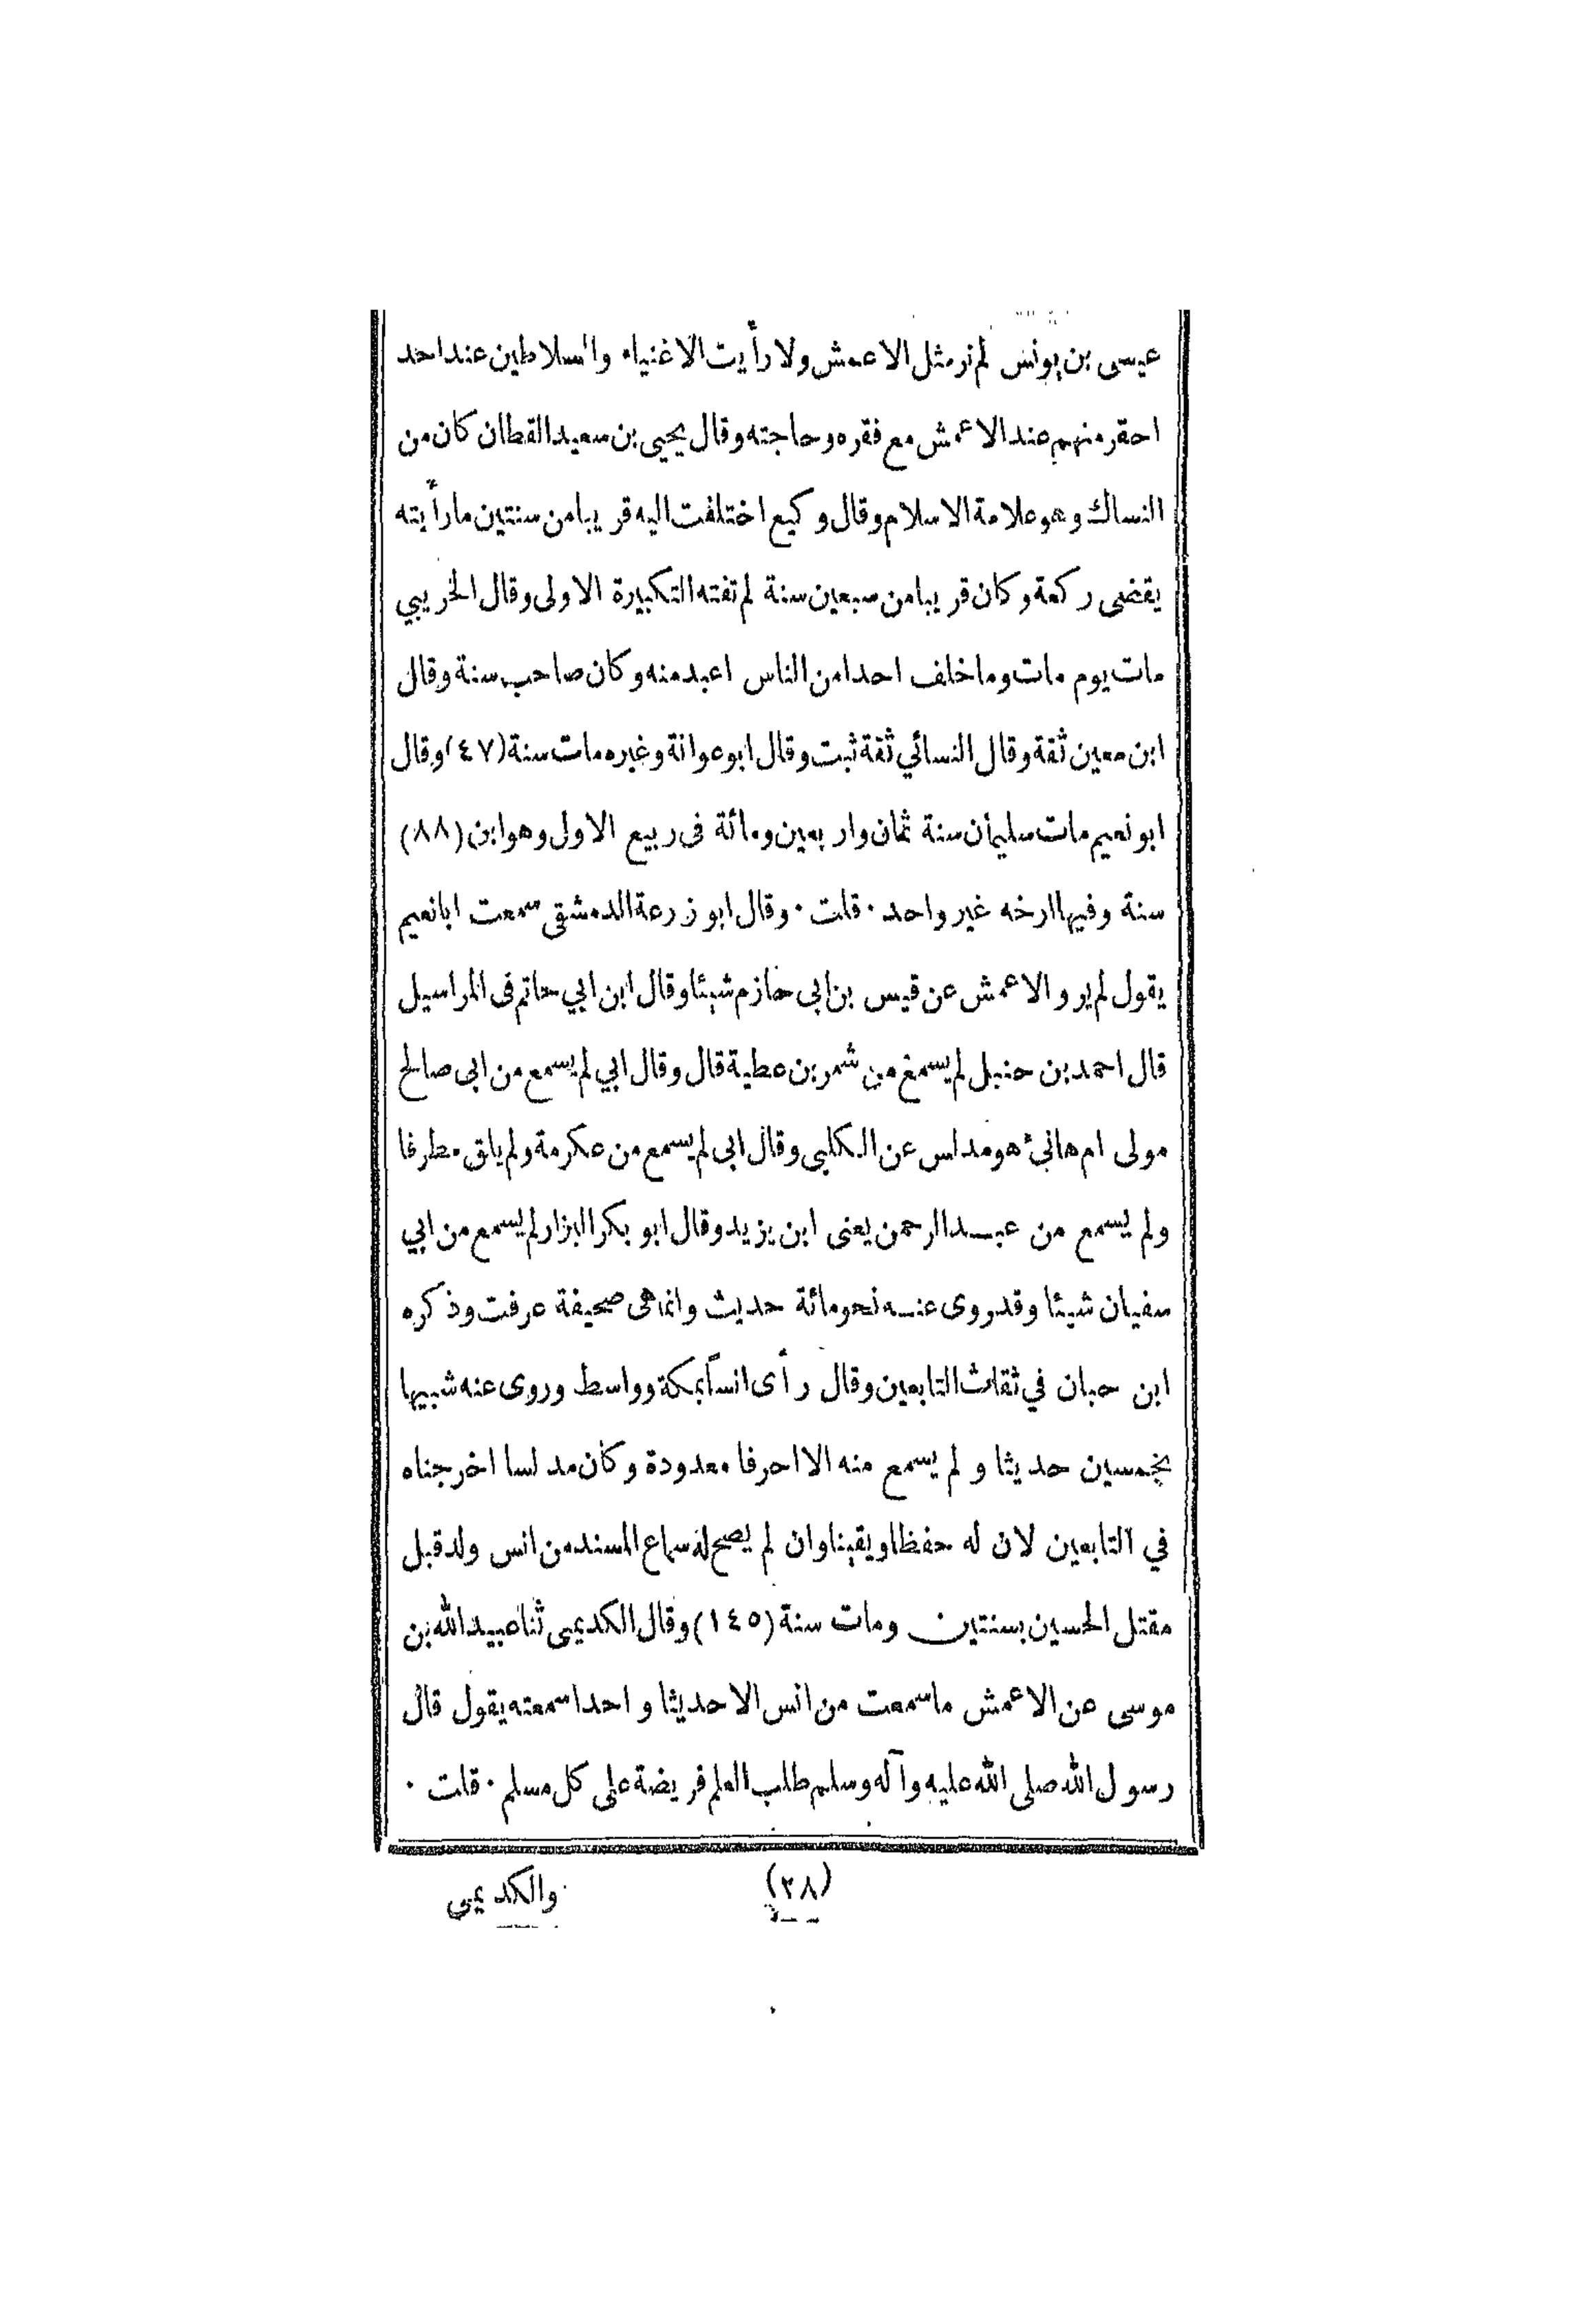 عيسى بن يونس لم نر مثل الاعمش ولا رأيت الاغنياء والسلاطين عند احد
احقر منهم عند الاعمش مع فقره وحاجته وقال يحيى بن سعيد القطان كان من
النساك وهو علامة الاسلام وقال وكيع اختلفت اليه قريبا من سنتين ما رأيته
يقضى ركعة وكان قريبا من سبعين سنة لم تفته التكبيرة الاولى وقال الخريبي
مات يوم مات وما خلف احدا من الناس اعبد منه وكان صاحب سنة وقال
ابن معين ثقة وقال النسائي ثقة ثبت وقال ابو عوانة وغيره مات سنة (٤٧) وقال
ابو نعيم مات سليمان سنة ثمان واربعين ومائة فى ربيع الاول وهو ابن (٨٨)
سنة وفيها ارخه غير واحد ٠ قلت ٠ وقال ابو زرعة الدمشقى سمعت ابا نعيم
يقول لم يرو الاعمش عن قيس بن ابى حازم شيئا وقال ابن ابي حاتم فى المراسيل
قال احمد بن حنبل لم يسمع من شمر بن عطية قال وقال ابي لم يسمع من ابى صالح
مولى ام هانئ هو مدلس عن الكلبى وقال ابى لم يسمع من عكرمة ولم يلق مطرفا
ولم يسمع من عبد الرحمن يعنى ابن يزيد وقال ابو بكر البزار لم يسمع من ابي
سفيان شيئا وقد روى عنه نحو مائة حديث وانما هى صحيفة عرفت وذكره
ابن حبان في ثقات التابعين وقال رأى انساً بمكة وواسط وروى عنه شبيها
بخمسين حديثا ولم يسمع منه الا احرفا معدودة وكان مدلسا اخرجناه
في التابعين لان له حفظا ويقينا وان لم يصح له سماع المسند من انس ولد قبل
مقتل الحسين بسنتين ومات سنة (١٤٥) وقال الكديمى ثنا عبيد الله بن
موسى عن الاعمش ما سمعت من انس الا حديثا واحدا سمعته يقول قال
رسول الله صلى الله عليه وآله وسلم طلب العلم فريضة على كل مسلم ٠ قلت ٠
(٢٨)
والكديمى